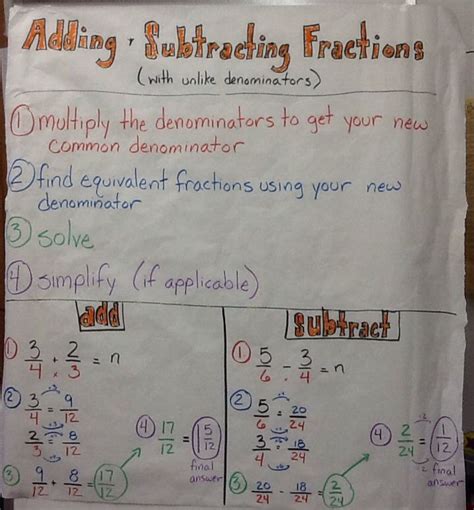 Adding & Subtracting Fractions
(with unlike denominators)
① multiply the denominators to get your new
common denominator
② find equivalent fractions using your new
denominator
③ solve
④ simplify (if applicable)
add
① 3/4 + 2/3 = n
② 3/4 = 9/12
2/3 = 8/12
③ 9/12 + 8/12 = 17/12
④ 17/12 = 1 5/12
final
answer
subtract
① 5/6 - 3/4 = n
② 5/6 = 20/24
3/4 = 18/24
③ 20/24 - 18/24 = 2/24
④ 2/24 = 1/12
final
answer